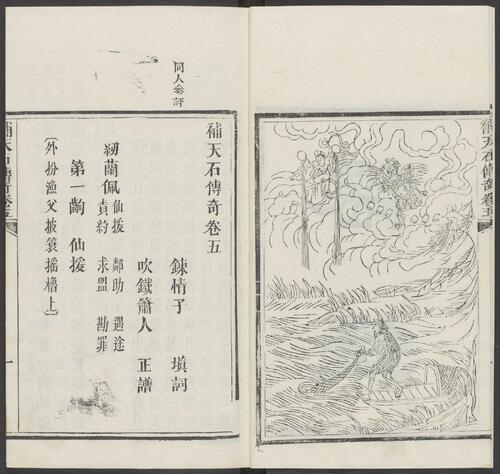 補天石傳奇卷五
同人參評
補天石傳奇卷五
鍊情子　塡詞
吹鐵簫人　正譜
紉蘭佩
仙援　鄰助　遇途
責約　求盟　勘罪
第一齣　仙援
〔外扮漁父披簑搖櫓上〕
補天石傳奇卷五
一